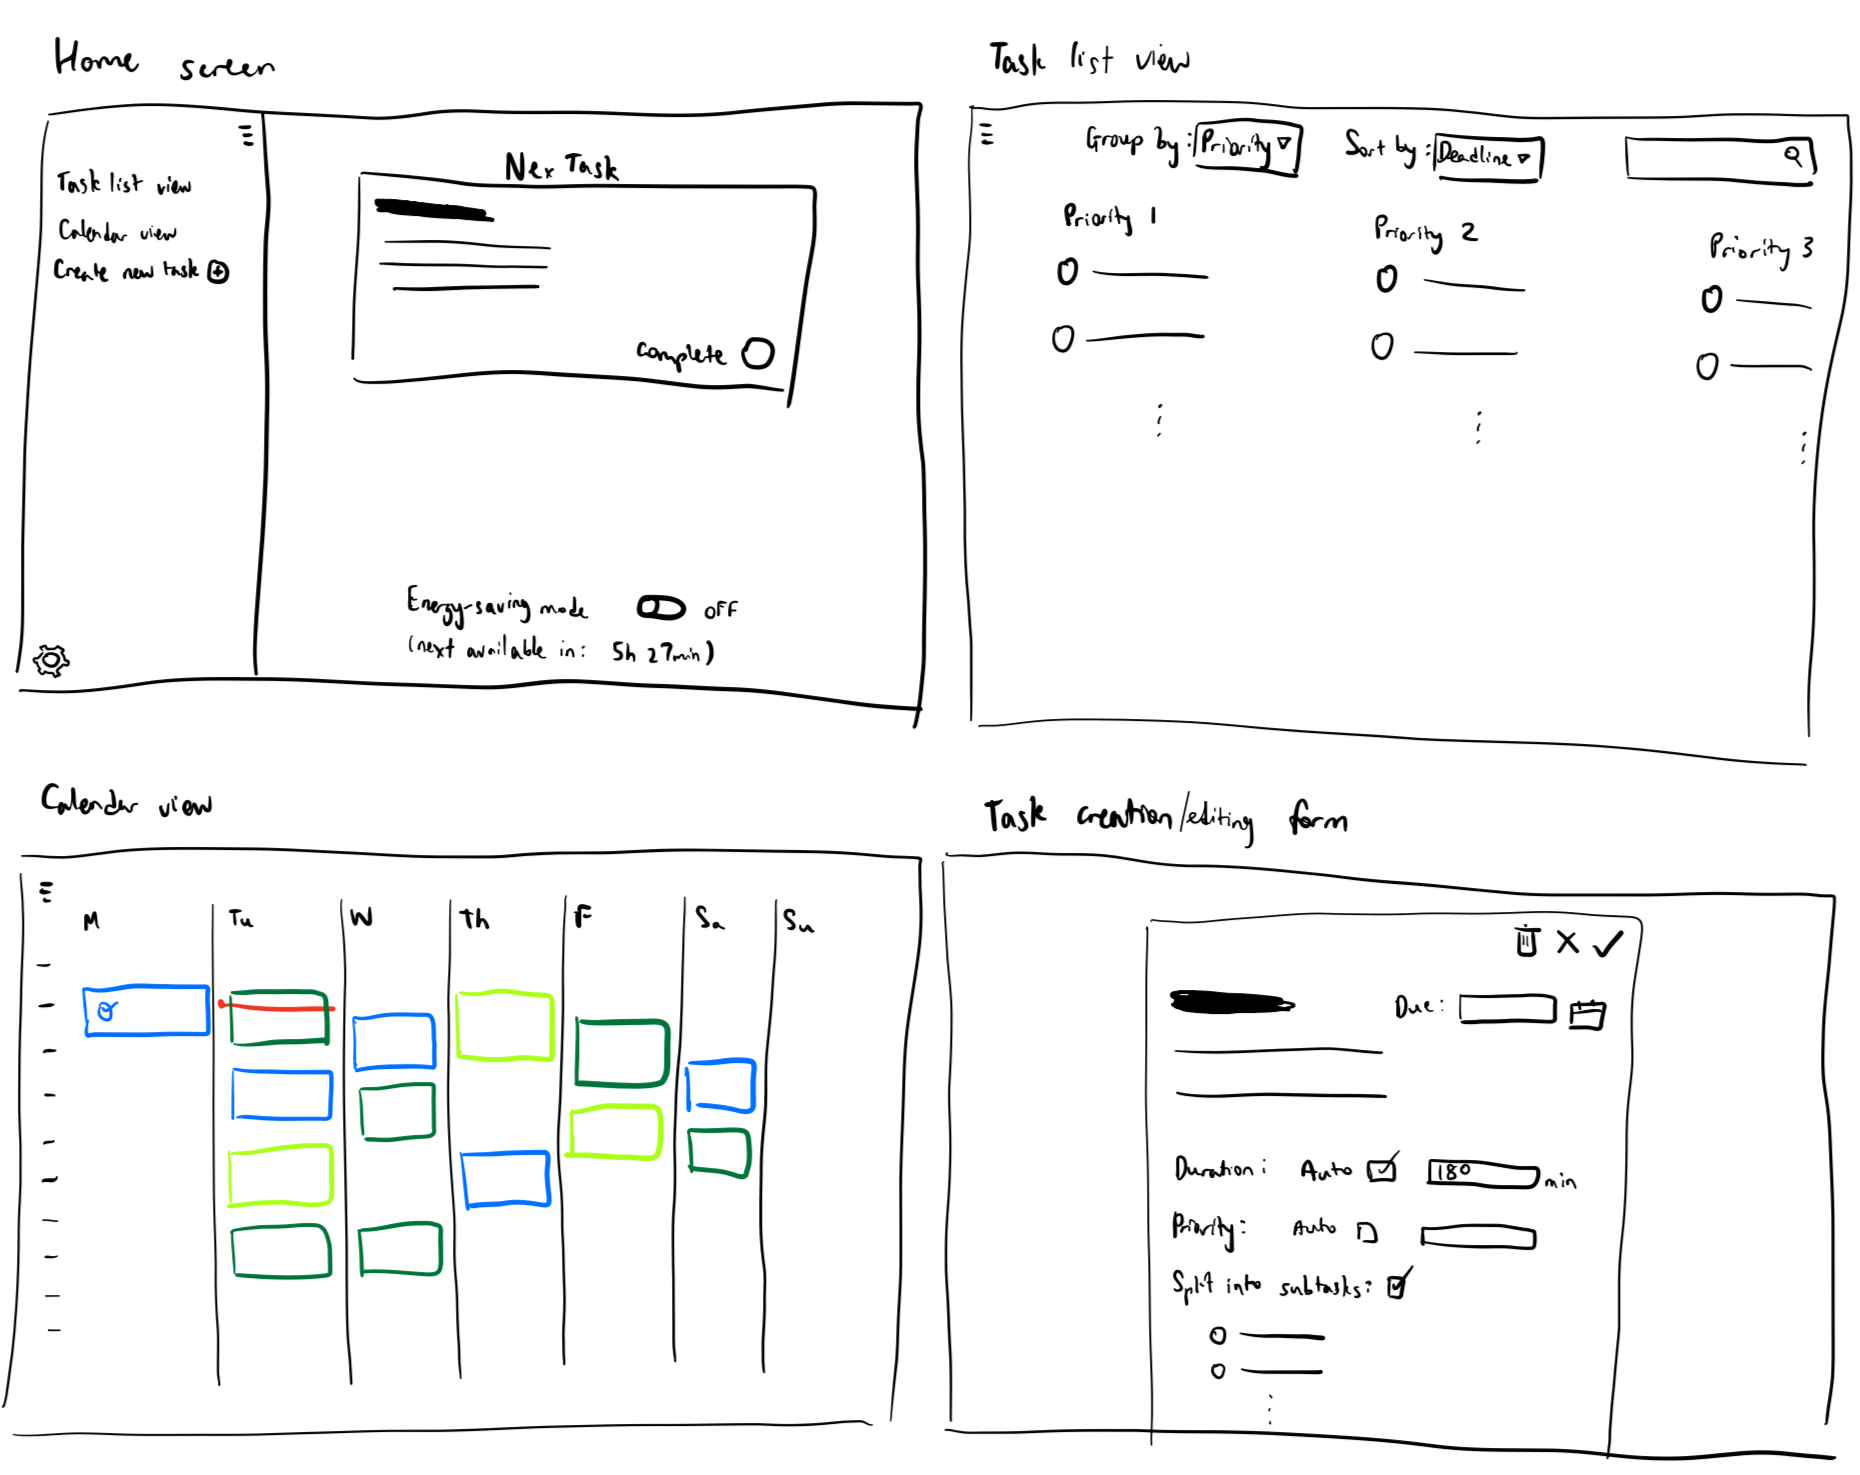 Home screen
Task list view
Calendar view
Create new task
Nex Task
Complete
Energy-saving mode OFF
(next available in: 5h 27min)
Task list view
Group by: Priority
Sort by: Deadline
Priority 1
Priority 2
Priority 3
Calendar view
M Tu W Th F Sa Su
Task creation/editing form
Due:
Duration: Auto 180 min
Priority: Auto
Split into subtasks: